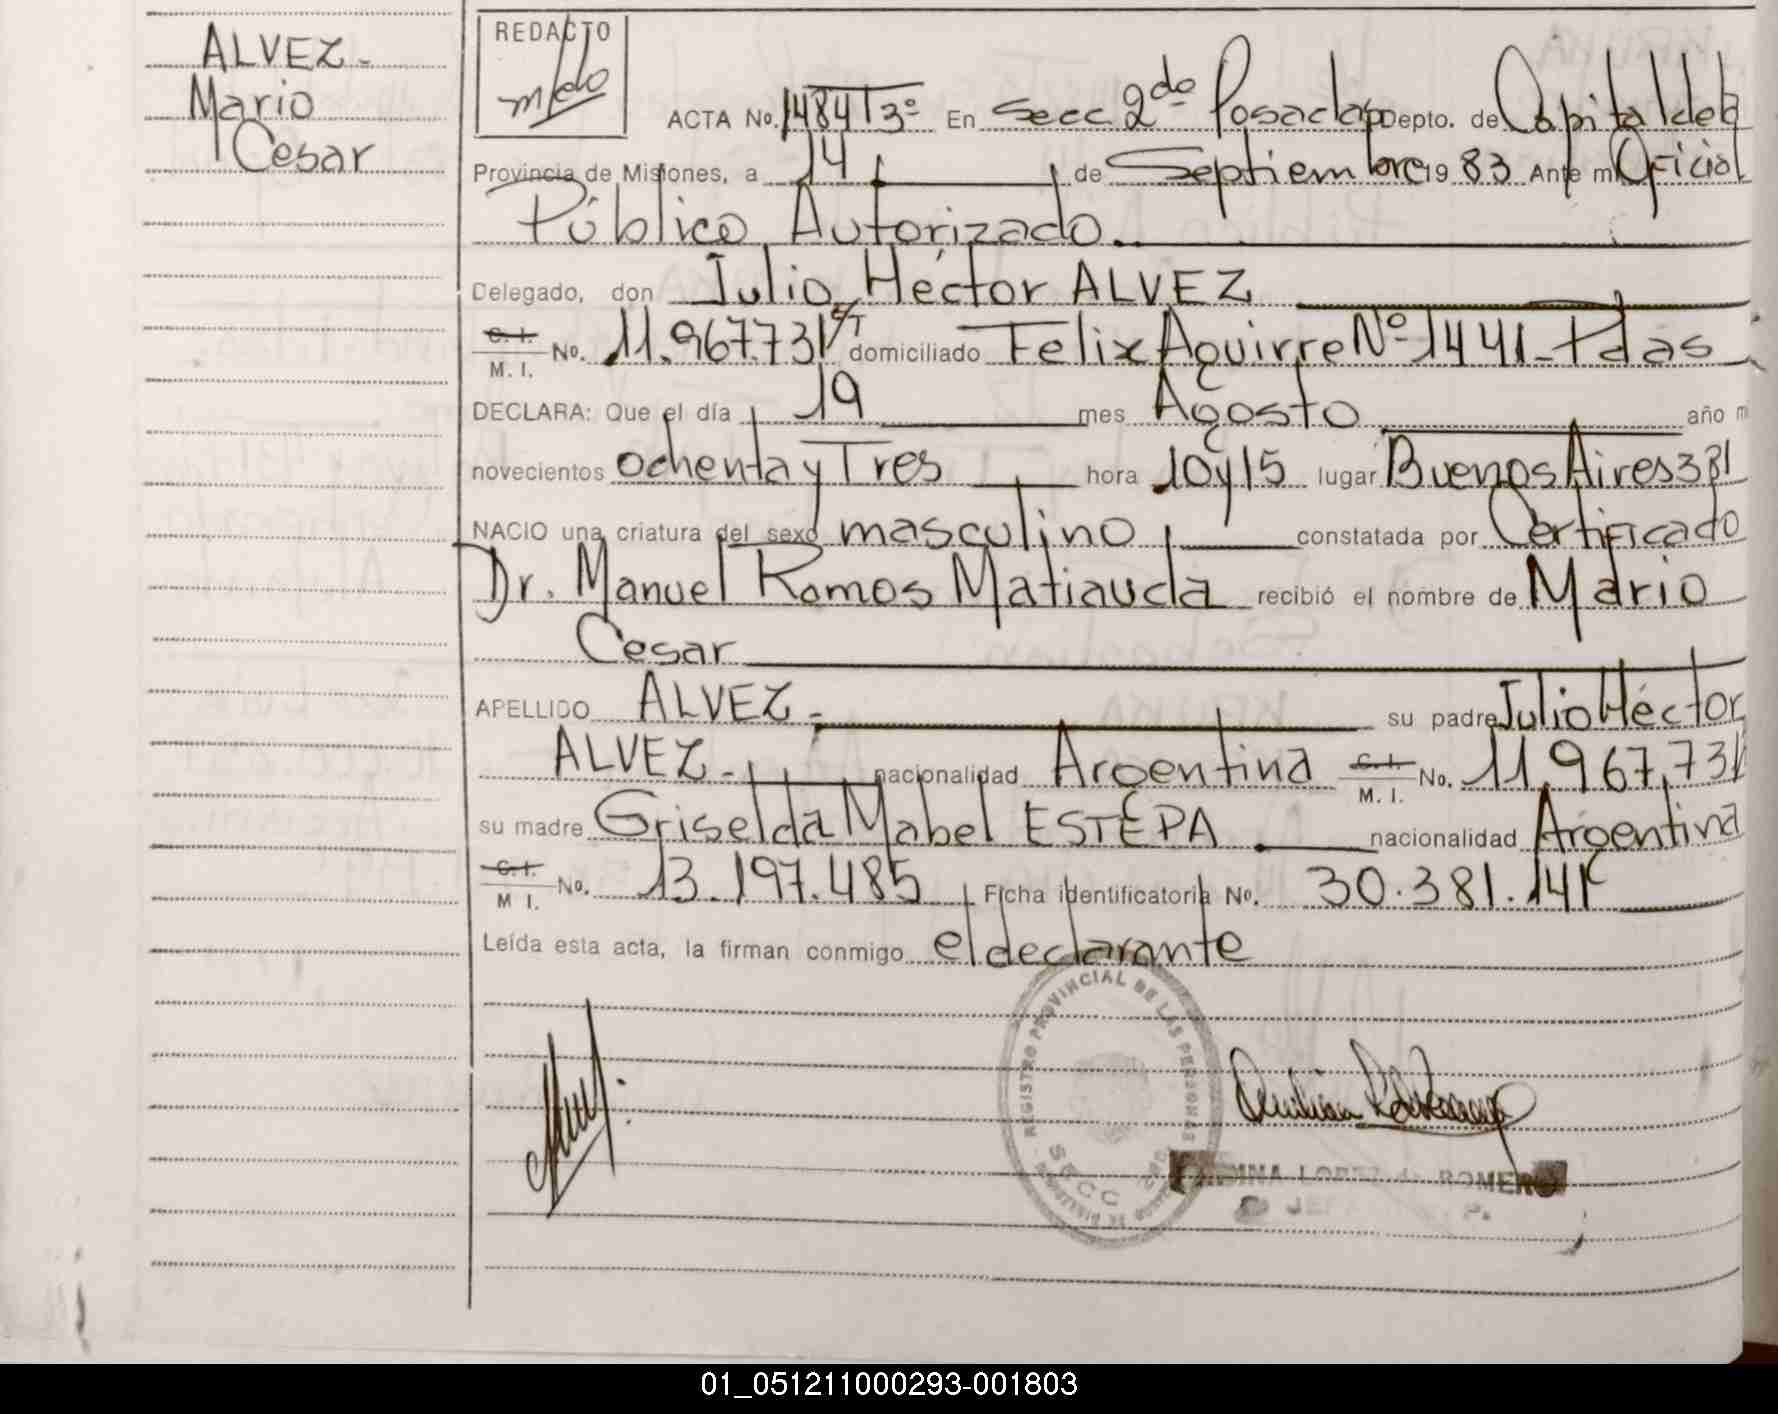 ALVEZ-
Mario
Cesar
REDACTO
ACTA No. 1484 T3º En Secc 2do Posadas Depto. de Capital de la
Provincia de Misiones, a 14 de Septiembre 19 83 Ante mi Oficial
Público Autorizado.
Delegado, don Julio Héctor ALVEZ
C. I.
M. I. No. 11.967.731 domiciliado Felix Aguirre Nº 1441-Pdas
DECLARA: Que el día 19 mes Agosto año m
novecientos ochenta y Tres hora 10 y 15 lugar Buenos Aires 381
NACIO una criatura del sexo masculino constatada por Certificado
Dr. Manuel Ramos Matiauda recibió el nombre de Mario
Cesar
APELLIDO ALVEZ- su padre Julio Héctor
ALVEZ- nacionalidad Argentina C. I. M. I. No. 11.967.731
su madre Griselda Mabel ESTEPA nacionalidad Argentina
C. I.
M I. No. 13.197.485 Ficha identificatoria No. 30.381.141
Leída esta acta, la firman conmigo el declarante
REGISTRO PROVINCIAL DE LAS PERSONAS
SECC
LOPEZ de ROMERO
01_051211000293-001803